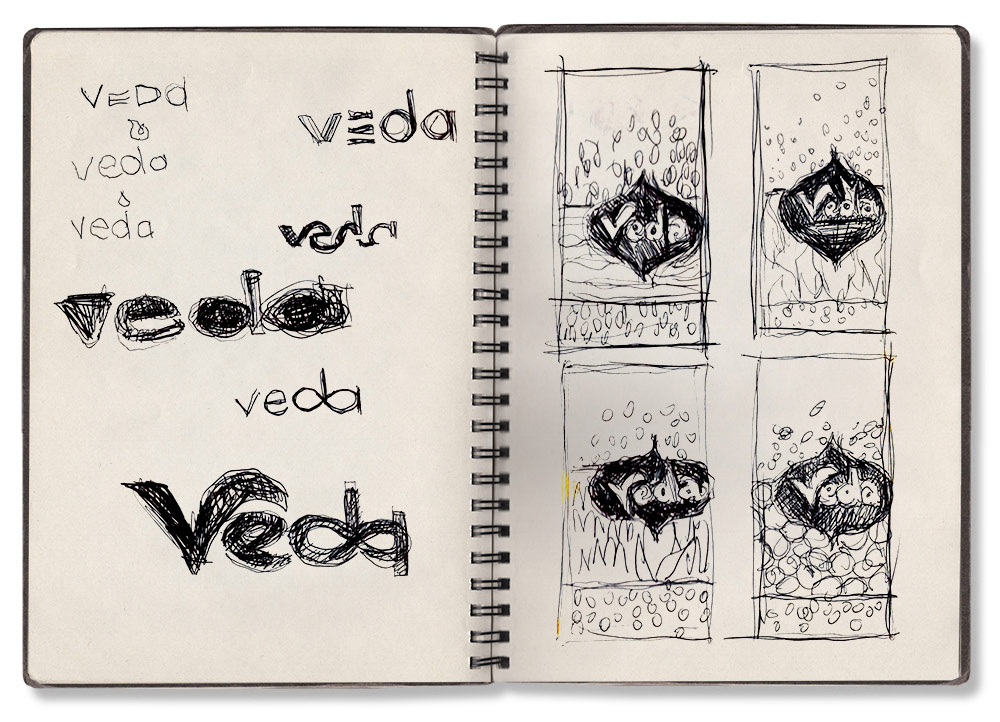 VEDa
veda
veda
veda
veda
veda
veda
Veda
Veda
Veda
Veda
Veda